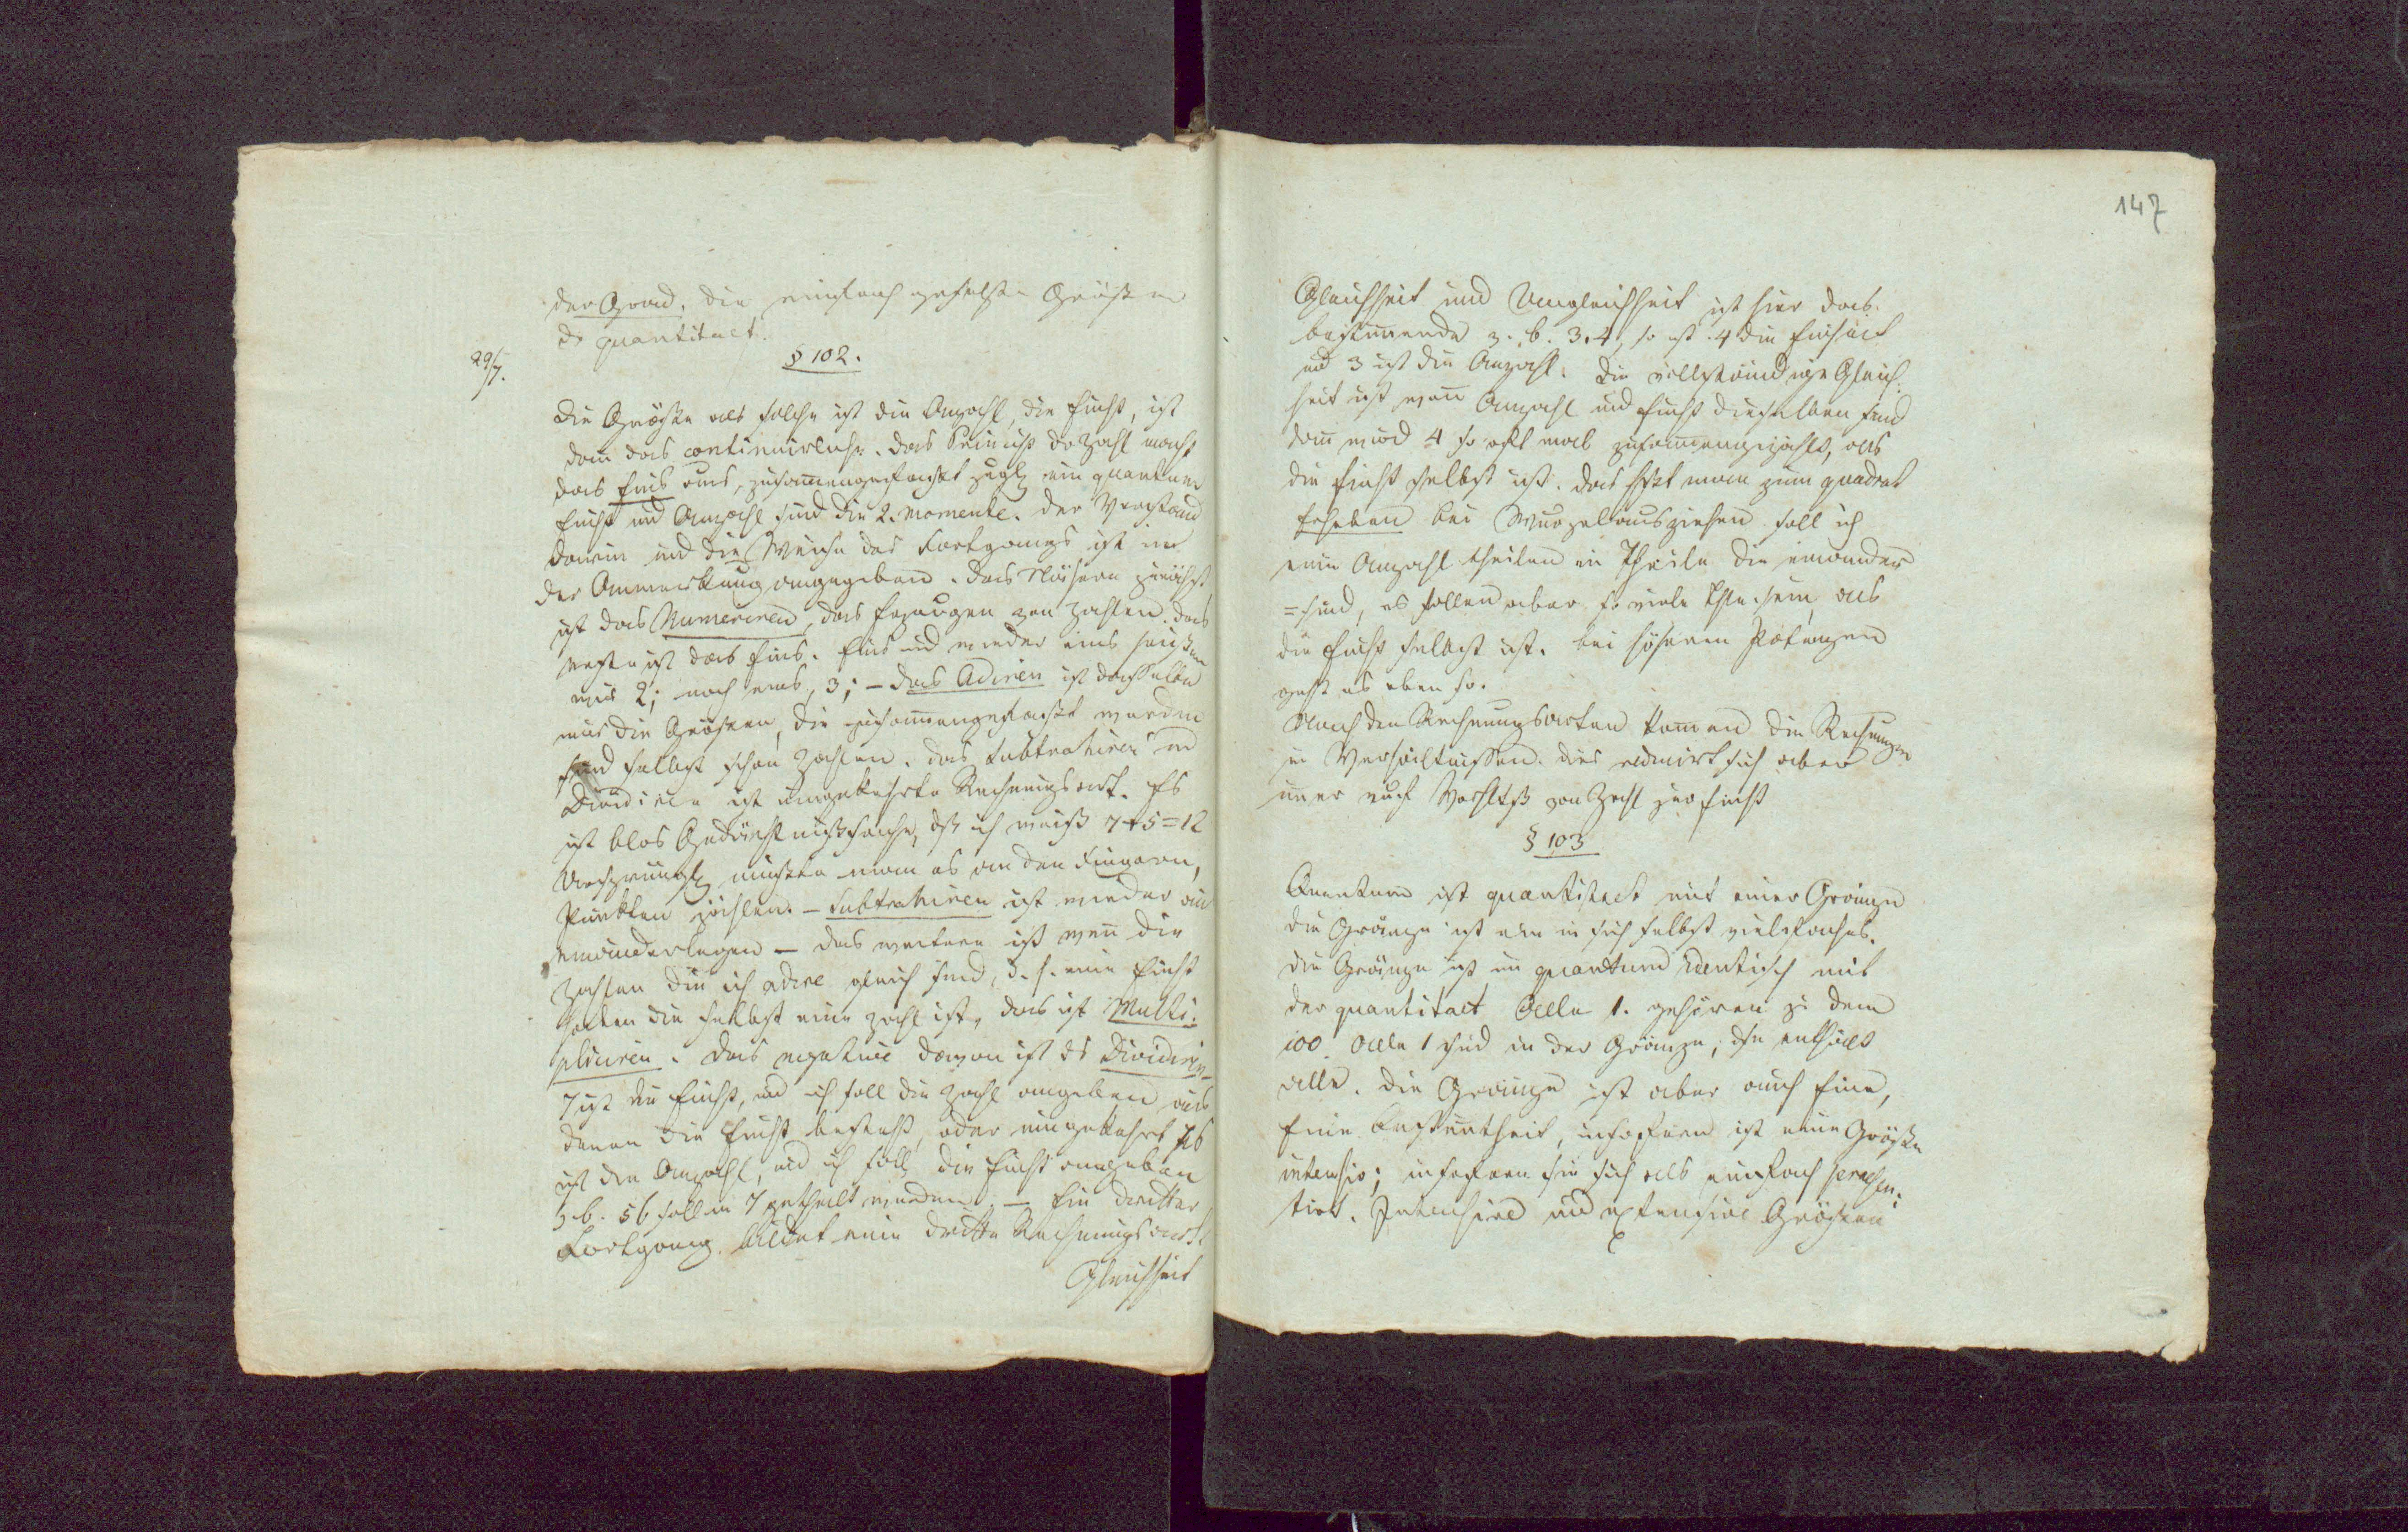 der Grad. Die einfach gesetzte Größe
der quantitaet.
29/7.
§ 102.
Die Größe als solche ist die Anzahl, die Einht, ist
dann das continuirliche. Das Princip der Zahl macht
das Eins aus, zusammengefaßt zugl. ein quantum
Einht und Anzahl sind die 2. Momente. Der Verstand
darin und die Weise des Fortgangs ist in
der Anmerkung angegeben. Das Nähere zunächst
ist das Numeriren, das Erzeugen von Zahlen. Das
erste ist das Eins. Eins und wieder eins heißen
wir 2; noch eins, 3; – das Adiren ist dasselbe
nur die Größen, die zusammengefaßt werden
sind selbst schon Zahlen. Das Subtrahiren und
Dividiren ist umgekehrte Rechnungsart. Es
ist blos Gedächtnißsache, dß ich weiß 7+5=12
Ursprüngl. mußte man es an den Fingern,
Punkten zählen. – Subtrahiren ist wieder aus
einanderlegen – das weitere ist wenn die
Zahlen die ich adire gleich sind, d. h. eine Einht
haben die selbst eine Zahl ist, das ist Multi-
pliciren. Das negative davon ist ds Dividiren–
7 ist die Einht, und ich soll die Zahl angeben aus
denen die Einht besteht, oder umgekehrt 56
ist die Anzahl, und ich soll die Einht angeben
z.b. 56 soll in 7 getheilt werden. – Ein dritter
Fortgang bildet eine dritte Rechnungsart.
Gleichheit
147
Gleichheit und Ungleichheit ist hier das
bestimmende z. b. 3.4, so ist 4 die Einheit
und 3 ist die Anzahl. Die vollständige Gleich-
heit ist wenn Anzahl und Einht dieselben sind
dann wird 4 so oft mal zusammengezählt, als
die Einht selbst ist. Das heißt man zum quadrat
Erheben bei Wurzelausziehen soll ich
eine Anzahl theilen in Theile die einander
= sind, es sollen aber so viele Thle sein, als
die Einht selbst ist. bei höheren Potenzen
geht es eben so.
Nach den Rechnungsarten kommen die Rechnungen
in Verhältnissen. Dies reducirt sich aber
immer auf Verhltß von Zahl zur Einht
§ 103
Quantum ist quantitaet mit einer Gränze
die Gränze ist eben in sich selbst vielfaches.
Die Gränze ist im quantum identisch mit
der quantitaet Alle 1. gehören zu dem
100. Alle 1 sind in der Gränze, sie enthält
alle. Die Gränze ist aber auch Eine,
Eine Bestimtheit, insofern ist eine Größe
intensiv; insofern sie sich als einfach presen-
tirt. Intensive und extensive Größen